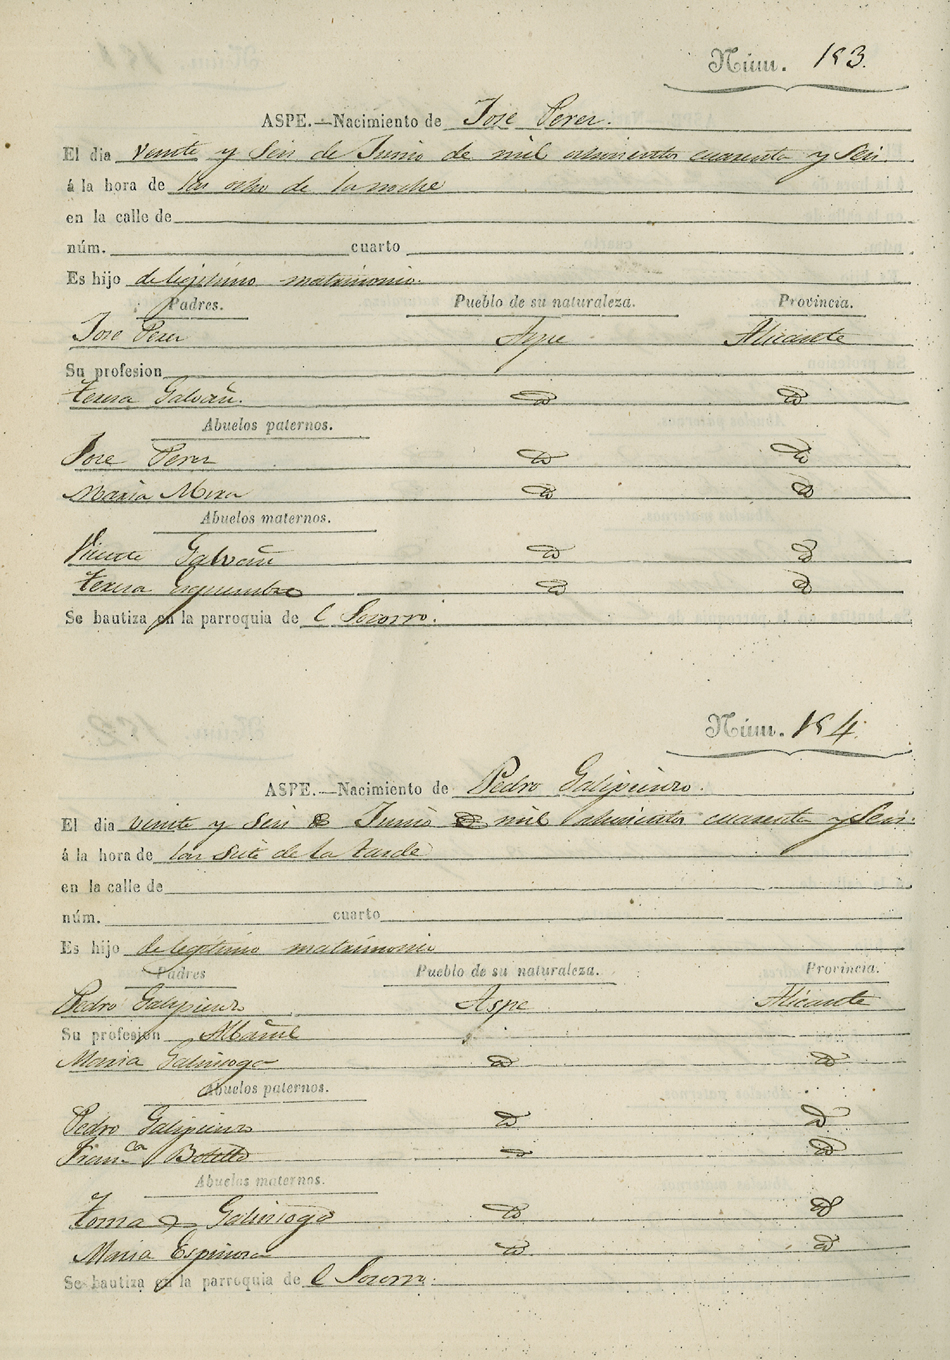 Núm. 183.
ASPE.—Nacimiento de Jose Perez.
El dia veinte y Seis de Junio de mil ochocientos cuarenta y Seis.
á la hora de las ocho de la noche
en la calle de
núm. cuarto
Es hijo de legitimo matrimonio.
Padres. Pueblo de su naturaleza. Provincia.
Jose Perez Aspe Alicante
Su profesion
Teresa Galvañ. Id Id
Abuelos paternos.
Jose Perez Id Id
Maria Mira Id Id
Abuelos maternos.
Vicente Galvañ Id Id
Teresa Id Id
Se bautiza en la parroquia de l Socorro.
Núm. 184.
ASPE.—Nacimiento de Pedro Galipienzo.
El dia veinte y Seis de Junio de mil ochocientos cuarenta y Seis.
á la hora de las Siete de la tarde
en la calle de
núm. cuarto
Es hijo de legitimo matrimonio
Padres Pueblo de su naturaleza. Provincia.
Pedro Galipienzo Aspe Alicante
Su profesion Albañil
Maria Id Id
Abuelos paternos.
Pedro Galipienzo Id Id
Fran.ca Botella Id Id
Abuelos maternos.
Tomas Id Id
Maria Espinosa Id Id
Se bautiza en la parroquia de l Socorro.